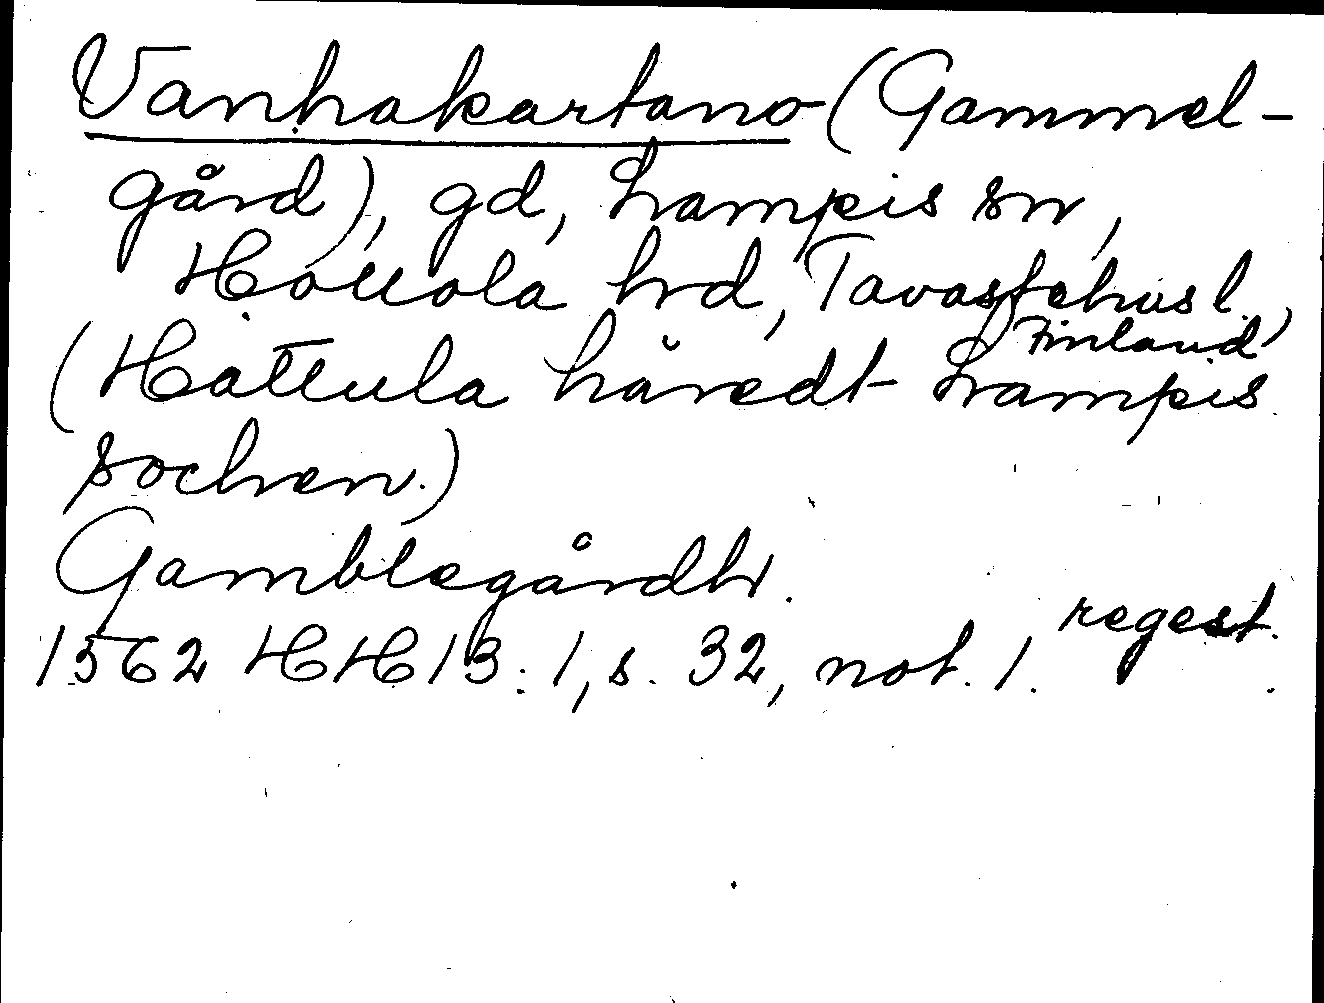 Vanhakartano (Gammel-
gård), gd, Lampis sn,
Hollola hrd, Tavastehus l.,
Finland
(Hattula häredt Lampis
sochen.)
Gamblegårdh.
1562 HH 13:1, s. 32, not. 1. regest.